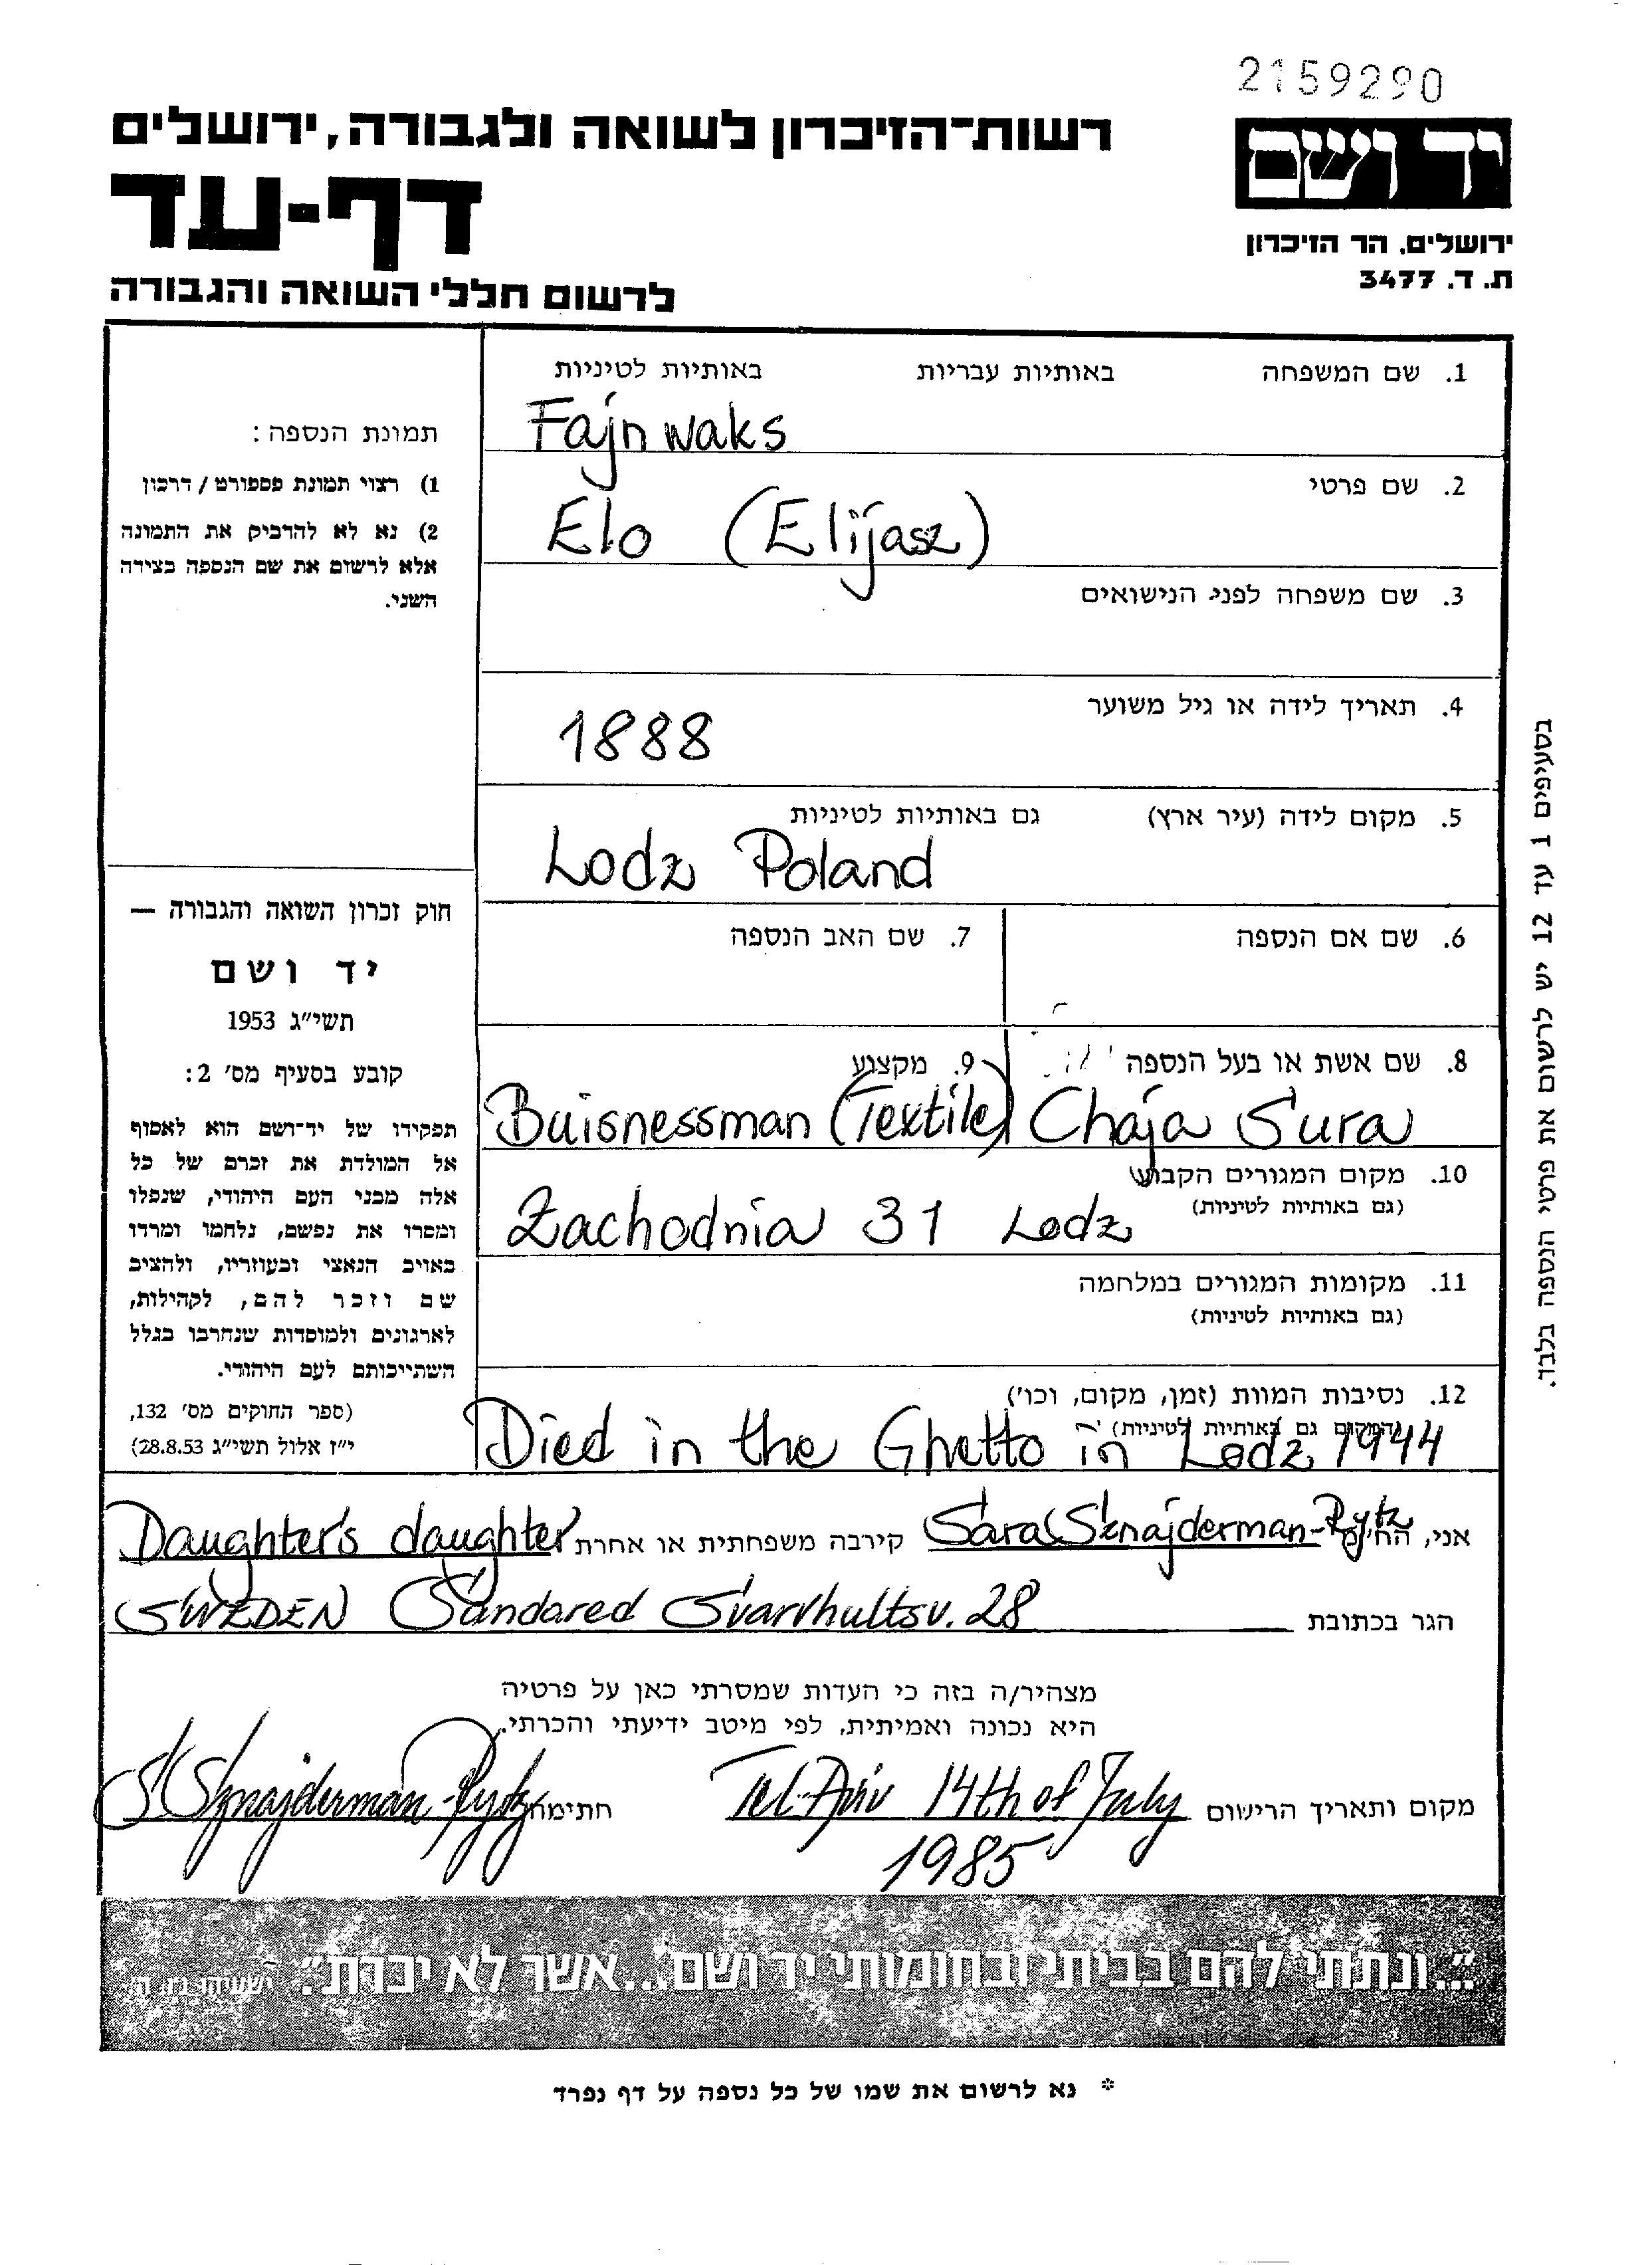 2159290
רשות־הזיכרון לשואה ולגבורה, ירושלים
יד ושם
דף-עד
ירושלים, הר הזיכרון
ת. ד. 3477
לרשום חללי השואה והגבורה
תמונת הנספה:
1) רצוי תמונת פספורט / דרכון
2) נא לא להדביק את התמונה
אלא לרשום את שם הנספה בצידה
השני.
חוק זכרון השואה והגבורה —
יד ושם
תשי"ג 1953
קובע בסעיף מס' 2:
תפקידו של יד־ושם הוא לאסוף
אל המולדת את זכרם של כל
אלה מבני העם היהודי, שנפלו
ומסרו את נפשם, נלחמו ומרדו
באויב הנאצי ובעוזריו, ולהציב
שם וזכר להם, לקהילות,
לארגונים ולמוסדות שנחרבו בגלל
השתייכותם לעם היהודי.
(ספר החוקים מס' 132,
י"ז אלול תשי"ג 28.8.53)
1. שם המשפחה באותיות עבריות באותיות לטיניות
Fajnwaks
2. שם פרטי
Elo (Elijasz)
3. שם משפחה לפני הנישואים
4. תאריך לידה או גיל משוער
1888
5. מקום לידה (עיר ארץ) גם באותיות לטיניות
Lodz Poland
6. שם אם הנספה
7. שם האב הנספה
8. שם אשת או בעל הנספה
Chaja Sura
9. מקצוע
Buisnessman (Textile)
10. מקום המגורים הקבוע
(גם באותיות לטיניות)
Zachodnia 31 Lodz
11. מקומות המגורים במלחמה
(גם באותיות לטיניות)
12. נסיבות המוות (זמן, מקום, וכו')
(המקום גם באותיות לטיניות)
Died in the Ghetto in Lodz 1944
אני, הח"מ Sara Sznajderman-Rytz קירבה משפחתית או אחרת Daughter's daughter
הגר בכתובת SWEDEN Sandared Svarvhultsv. 28
מצהיר/ה בזה כי העדות שמסרתי כאן על פרטיה
היא נכונה ואמיתית, לפי מיטב ידיעתי והכרתי.
מקום ותאריך הרישום Tel-Aviv 14th of July
1985
חתימה S Sznajderman-Rytz
"...ונתתי להם בביתי ובחומותי יד ושם...אשר לא יכרת". ישעיהו נו, ה'
* נא לרשום את שמו של כל נספה על דף נפרד
בסעיפים 1 עד 12 יש לרשום את פרטי הנספה בלבד.